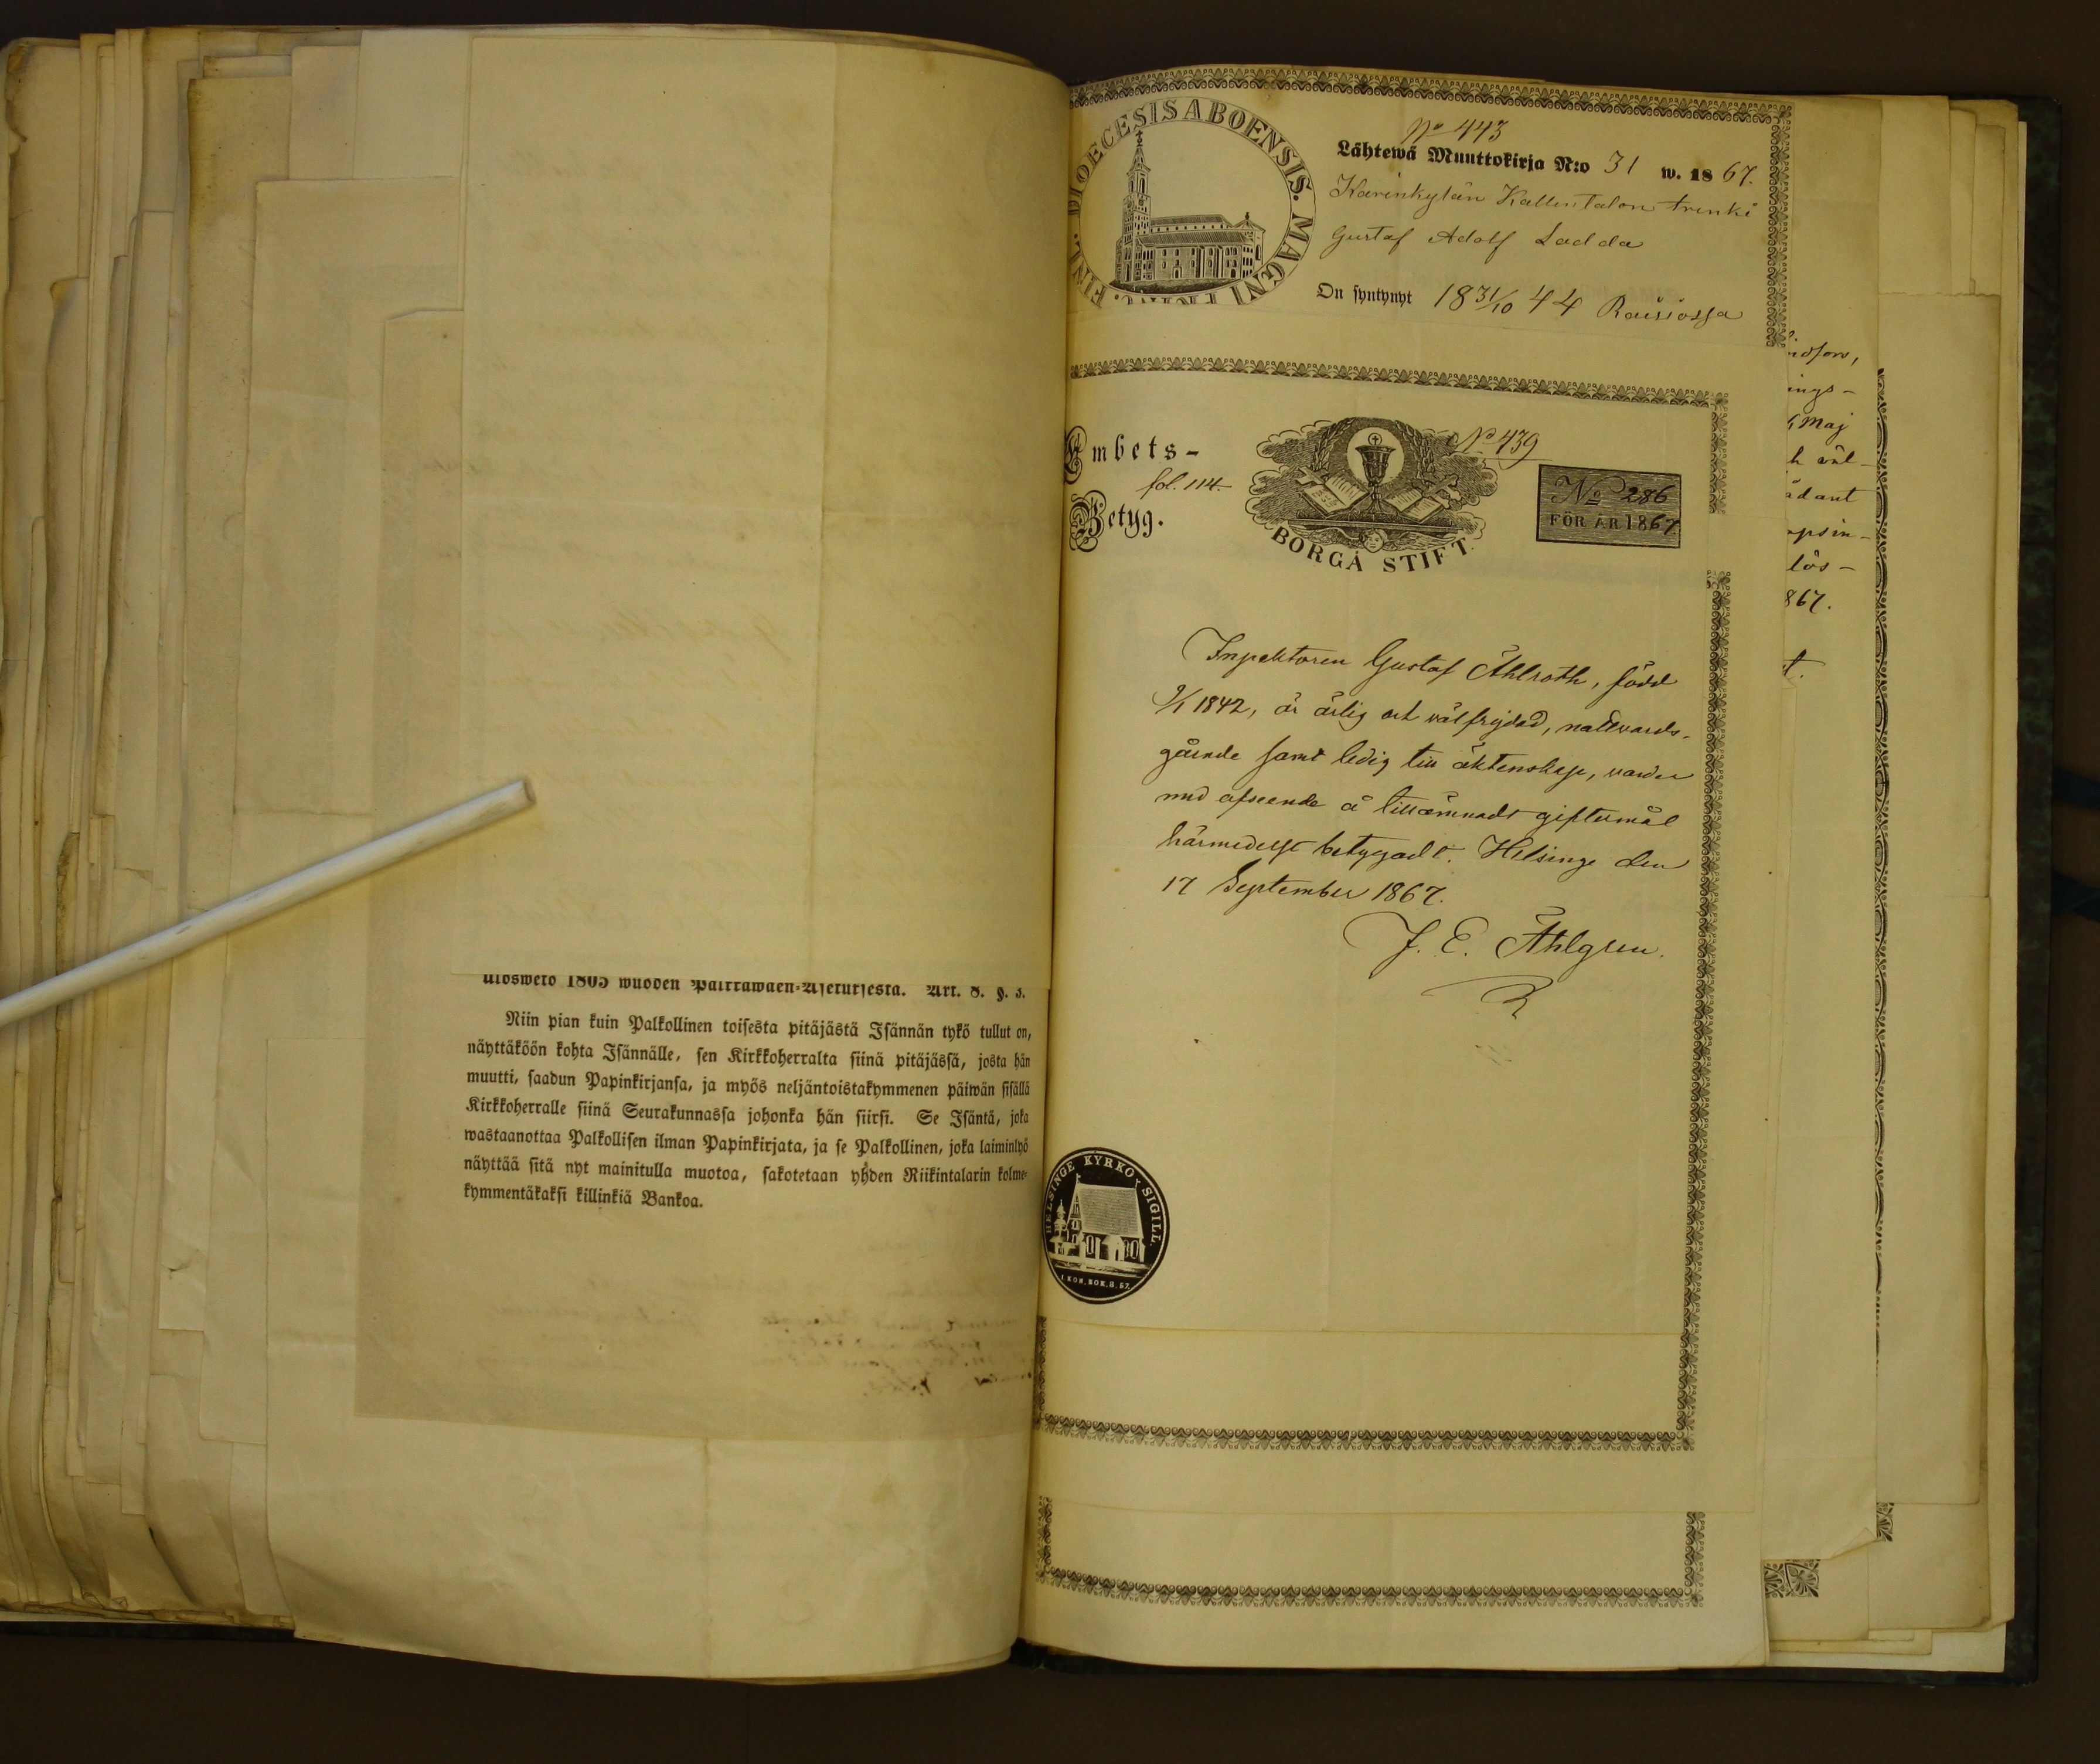 Ulosweto 1805 wuoden Palkkawäen-Asetuksesta. Art. 8. §. 3.
Niin pian kuin Palkollinen toisesta pitäjästä Isännän tykö tullut on,
näyttäköön kohta Isännälle, sen Kirkkoherralta siinä pitäjässä, josta hän
muutti, saadun Papinkirjansa, ja myös neljäntoistakymmenen päiwän sisällä
Kirkkoherralle siinä Seurakunnassa johonka hän siirsi. Se Isäntä, joka
wastaanottaa Palkollisen ilman Papinkirjata, ja se Palkollinen, joka laiminlyö
näyttää sitä nyt mainitulla muotoa, sakotetaan yhden Riikintalarin kolme-
kymmentäkaksi killinkiä Bankoa.
DIOECESIS ABOENSIS. MAGNI FINL.
No 443
Lähtewä Muuttokirja N:o 31 w. 1867.
Karinkylän Kallen talon trenki
Gustaf Adolf Ladda
On syntynyt 18 31/10 44 Raisiossa
Embets-
fol. 114.
Betyg.
No 439
BORGÅ STIFT.
No 286
FÖR ÅR 1867.
Inspektoren Gustaf Åhlroth, född
9/1 1842, är ärlig och välfrejdad, nattvards-
gående samt ledig till äktenskap, varder
med afseende å tillämnadt giftermål
härmedelst betygadt. Helsinge den
17 September 1867.
J. E. Åhlgren.
HELSINGE KYRKO SIGILL.
1 KON. BOK. 8. 57.
ings-
Maj
867.